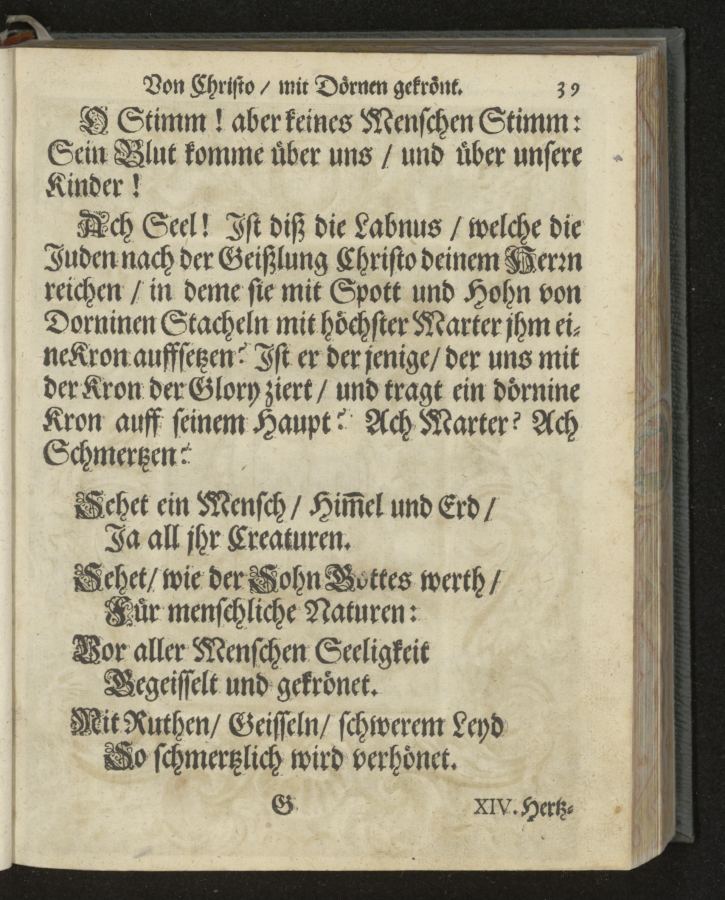 Von Christo / mit Dörnen gekrönt. 39
O Stimm ! aber keines Menschen Stimm:
Sein Blut komme über uns / und über unsere
Kinder !
Ach Seel! Ist diß die Labnus / welche die
Juden nach der Geißlung Christo deinem Herrn
reichen / in deme sie mit Spott und Hohn von
Dorninen Stacheln mit höchster Marter jhm ei-
ne Kron auffsetzen? Ist er der jenige/ der uns mit
der Kron der Glory ziert / und tragt ein dörnine
Kron auff seinem Haupt? Ach Marter? Ach
Schmertzen?
Sehet ein Mensch / Him̄el und Erd /
Ja all jhr Creaturen.
Sehet/ wie der Sohn Gottes werth /
Für menschliche Naturen:
Vor aller Menschen Seeligkeit
Gegeisselt und gekrönet.
Mit Ruthen/ Geisseln/ schwerem Leyd
So schmertzlich wird verhönet.
G XIV. Hertz-